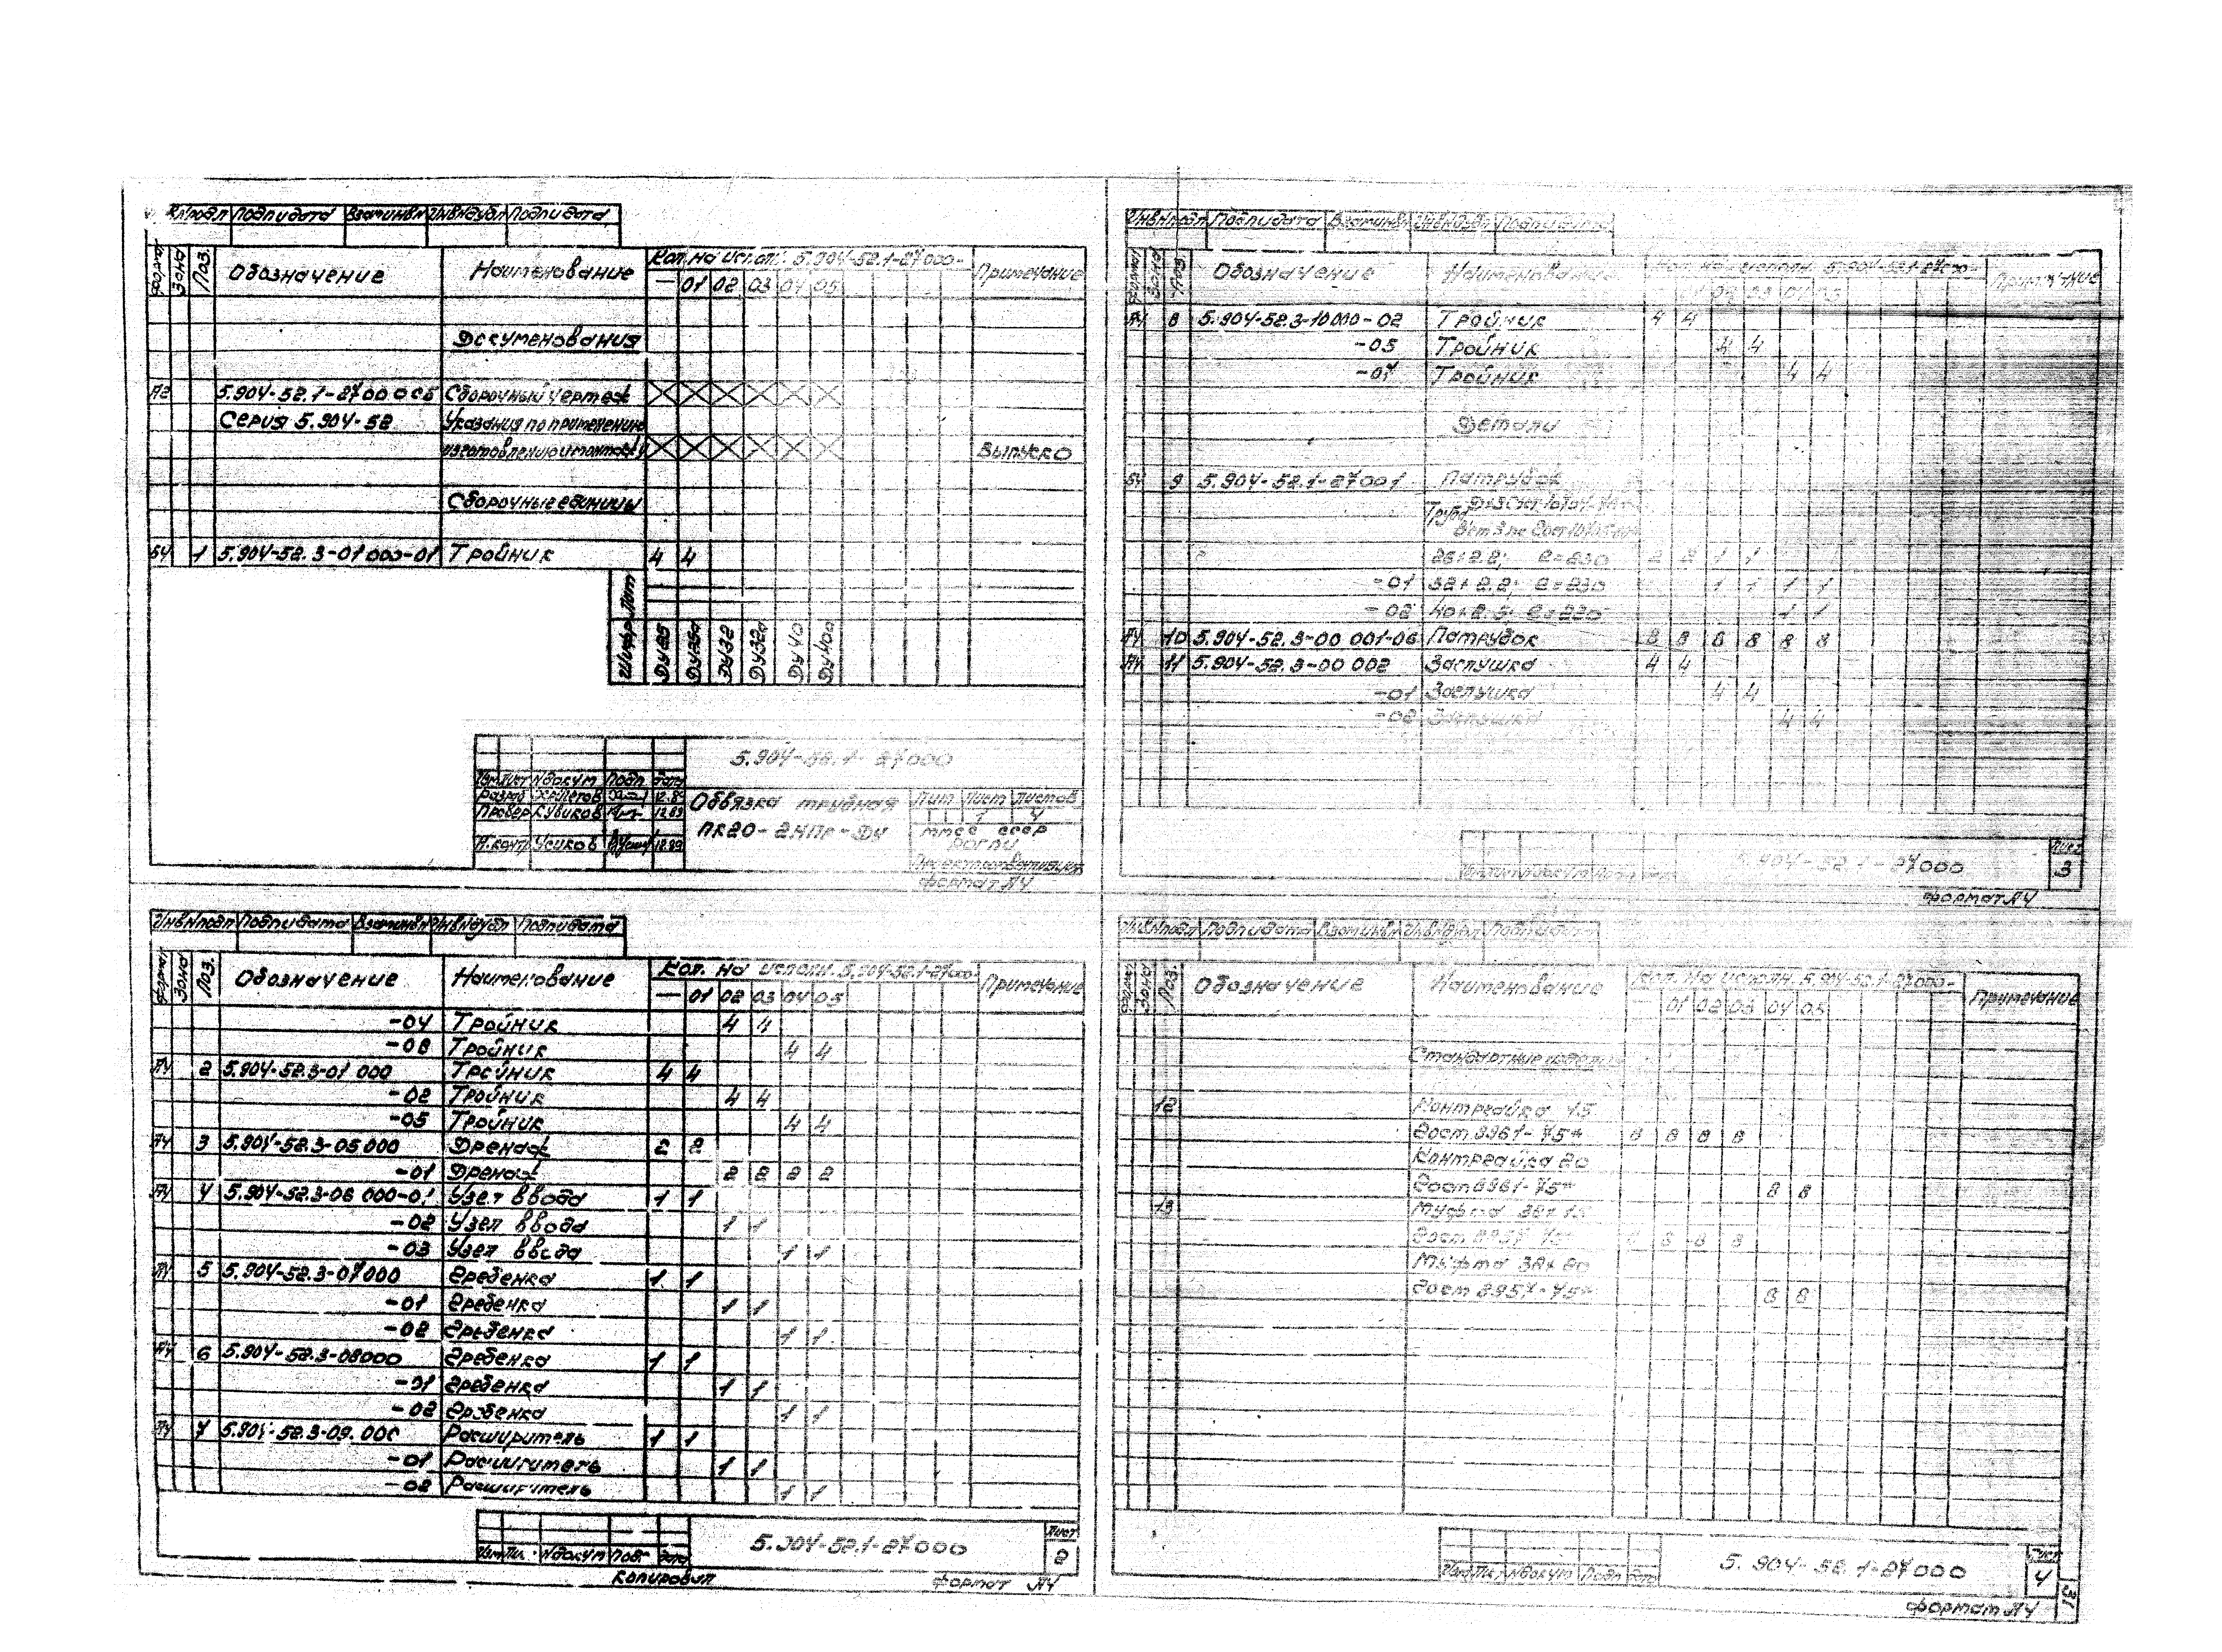 Подп и дата Взам инв N Инв N дубл Подп и дата
Формат Зона Поз. Обозначение Наименование Кол. на исполн. 5.904-52.1-27000- Примечание
— 01 02 03 04 05
Документация
А2 5.904-52.1-27000СБ Сборочный чертеж
Серия 5.904-52 Указания по применению
изготовлению и монтажу Выпуск 0
Сборочные единицы
БЧ 1 5.904-52.3-01 000-01 Тройник 4 4
ДУ25 ДУ25а ДУ32 ДУ32а ДУ40 ДУ40а
5.904-52.1-27000
Изм Лист N докум Подп. Дата
Разраб 12.89
Провер 12.89
Н.конт Усиков 12.89
Обвязка трубная
Лит Лист Листов
1 4
формат А4
Инв N подл Подп и дата Взам инв N Инв N дубл Подп и дата
Формат Зона Поз. Обозначение Наименование Кол. на исполн. 5.904-52.1-27000- Примечание
— 01 02 03 04 05
-04 Тройник 4 4
-08 Тройник 4 4
А4 2 5.904-52.3-01 000 Тройник 4 4
-02 Тройник 4 4
-05 Тройник 4 4
А4 3 5.904-52.3-05 000 Дренаж 2 2
-01 Дренаж 2 2 2 2
А4 4 5.904-52.3-06 000-01 Узел ввода 1 1
-02 Узел ввода 1 1
-03 Узел ввода 1 1
А4 5 5.904-52.3-07000 Гребенка 1 1
-01 Гребенка 1 1
-02 Гребенка 1 1
А4 6 5.904-52.3-08000 Гребенка 1 1
-01 Гребенка 1 1
-02 Гребенка 1 1
А4 7 5.904-52.3-09.000 Расширитель 1 1
-01 Расширитель 1 1
-02 Расширитель 1 1
5.904-52.1-27000
Лист
2
Изм Лист N докум Подп Дата
Копировал
формат А4
Инв N подл Подп и дата Взам инв N Инв N дубл Подп и дата
Формат Зона Поз. Обозначение Наименование Кол. на исполн. 5.904-52.1-27000- Примечание
А4 8 5.904-52.3-10000-02 Тройник 4 4
-05 Тройник 4 4
-07 Тройник 4 4
Детали
БЧ 9 5.904-52.1-27001 Патрубок
Труба
2 2 1 1
-01 1 1 1 1
-02 1 1
А4 10 5.904-52.3-00 001-06 Патрубок 8 8 8 8 8 8
А4 11 5.904-52.3-00 002 Заглушка 4 4
-01 Заглушка 4 4
-02 Заглушка 4 4
5.904-52.1-27000
Лист
3
формат А4
Инв N подл Подп и дата Взам инв N Инв N дубл Подп и дата
Формат Зона Поз. Обозначение Наименование Кол. на исполн. 5.904-52.1-27000- Примечание
01 02 03 04 05
Стандартные изделия
12 Контргайка 15
Гост 8961-75* 8 8 8 8
Контргайка 20
Гост 8961-75* 8 8
13 Муфта
Гост 8957-75* 8 8 8
Муфта
Гост 8957-75* 8 8
5.904-52.1-27000
Лист
4
Изм Лист N докум Подп Дата
формат А4
31